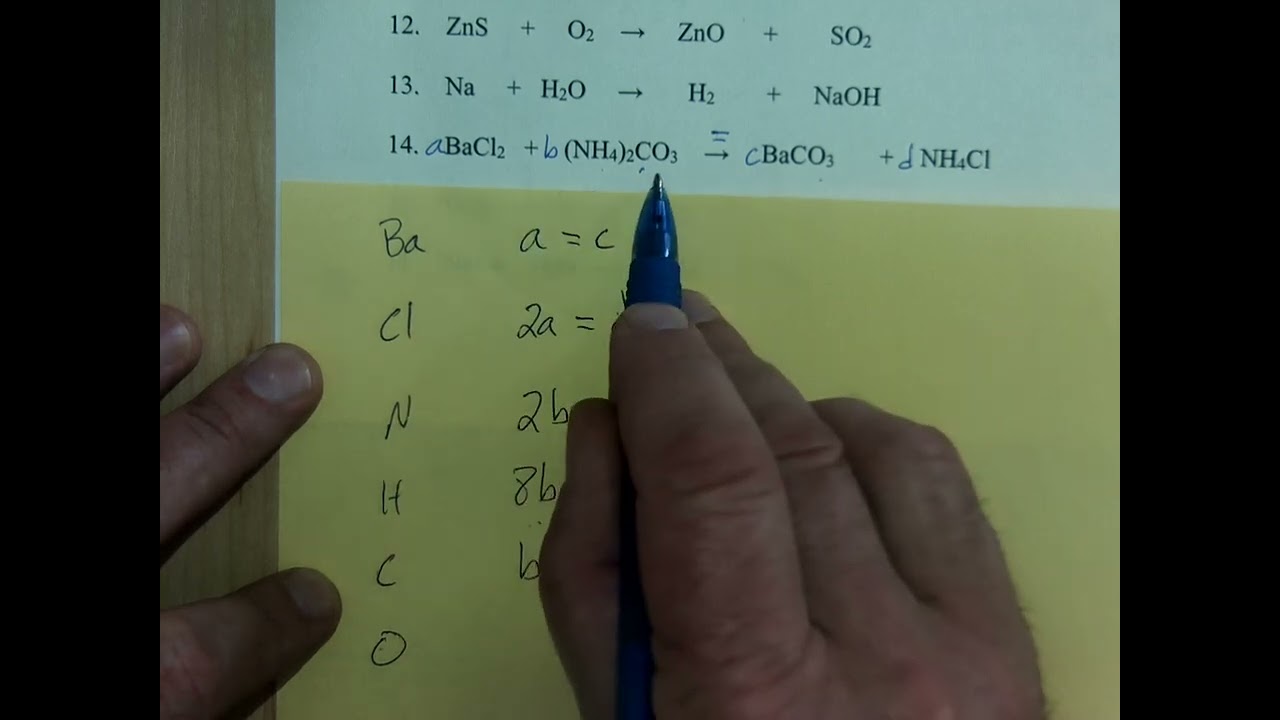 12. ZnS + O₂ → ZnO + SO₂
13. Na + H₂O → H₂ + NaOH
14. aBaCl₂ + b (NH₄)₂CO₃ =→ cBaCO₃ + d NH₄Cl
Ba a = c
Cl 2a =
N 2b
H 8b
C b
O